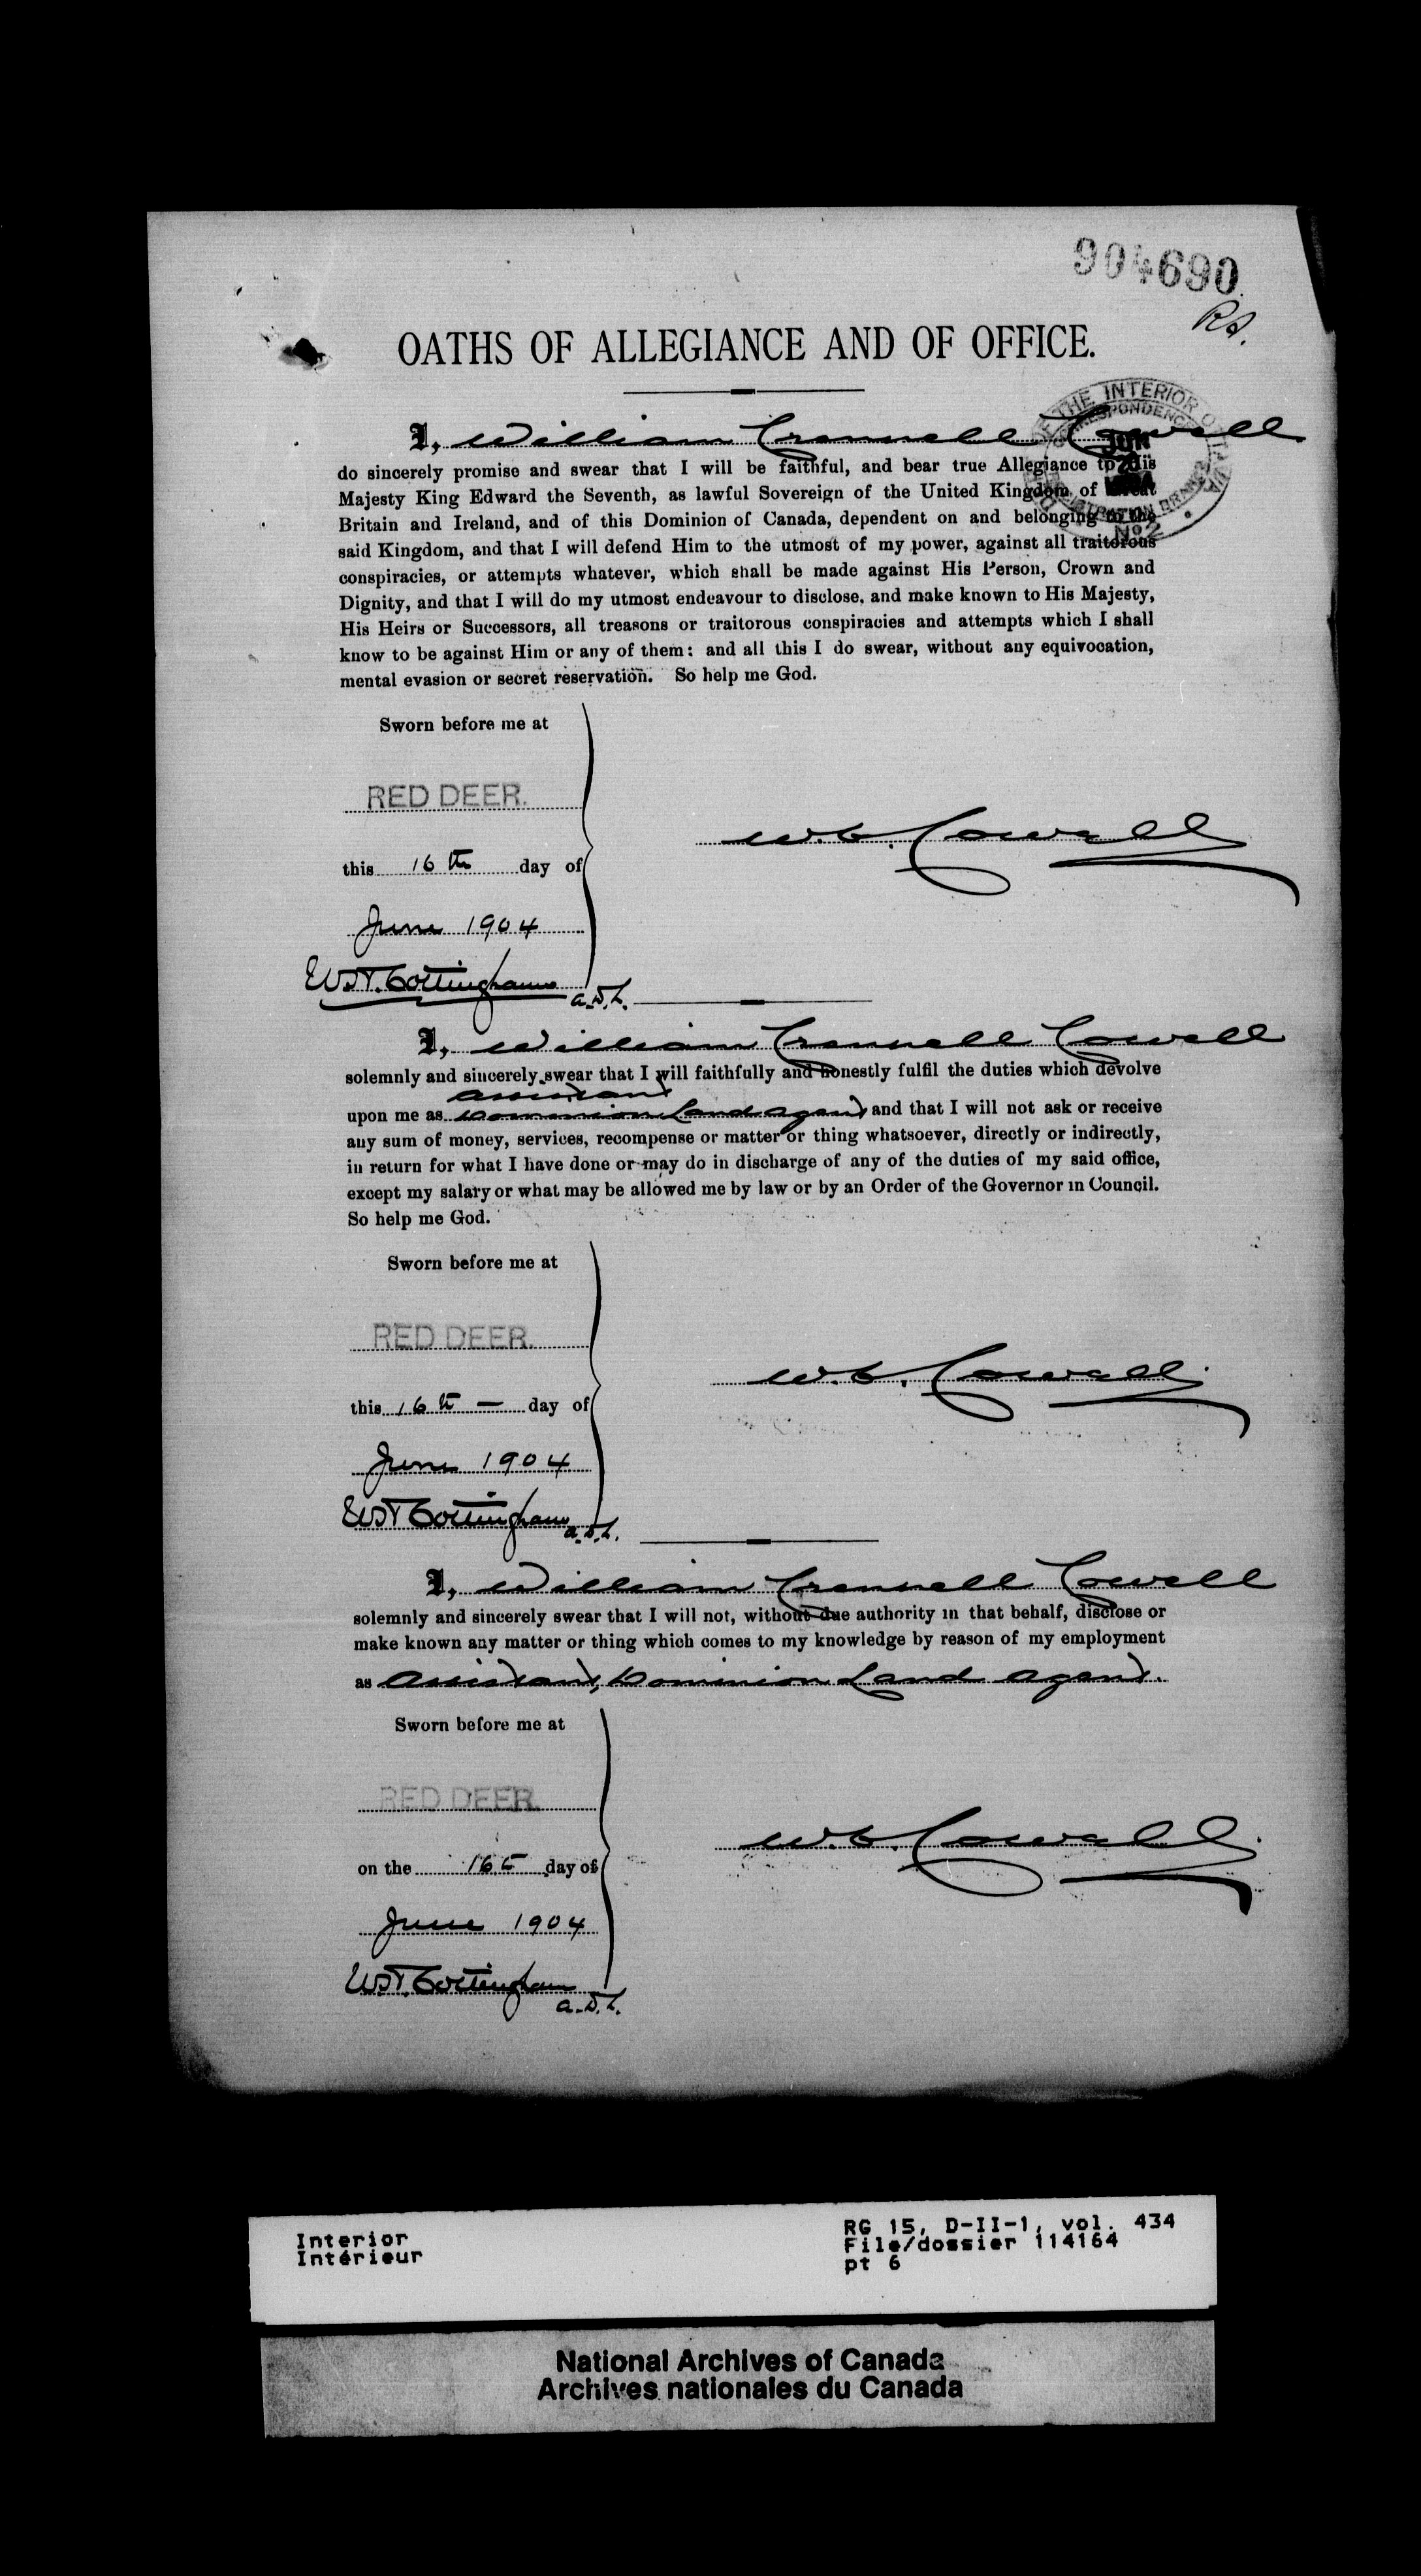 904690
OATHS OF ALLEGIANCE AND OF OFFICE.
THE INTERIOR OTTAWA
CORRESPONDENCE
JUN
1904
REGISTRATION BRANCH
No. 2
I, William Crennell Cowell
do sincerely promise and swear that I will be faithful, and bear true Allegiance to His
Majesty King Edward the Seventh, as lawful Sovereign of the United Kingdom of Great
Britain and Ireland, and of this Dominion of Canada, dependent on and belonging to the
said Kingdom, and that I will defend Him to the utmost of my power, against all traitorous
conspiracies, or attempts whatever, which shall be made against His Person, Crown and
Dignity, and that I will do my utmost endeavour to disclose, and make known to His Majesty,
His Heirs or Successors, all treasons or traitorous conspiracies and attempts which I shall
know to be against Him or any of them: and all this I do swear, without any equivocation,
mental evasion or secret reservation. So help me God.
Sworn before me at
RED DEER.
this 16th day of
June 1904
W.C. Cowell
W.T. Cottingham
a.D.L.
I, William Crennell Cowell
solemnly and sincerely swear that I will faithfully and honestly fulfil the duties which devolve
assistant
upon me as Dominion Land Agent and that I will not ask or receive
any sum of money, services, recompense or matter or thing whatsoever, directly or indirectly,
in return for what I have done or may do in discharge of any of the duties of my said office,
except my salary or what may be allowed me by law or by an Order of the Governor in Council.
So help me God.
Sworn before me at
RED DEER.
this 16th — day of
June 1904
W.C. Cowell
W.T. Cottingham
a.D.L.
I, William Crennell Cowell
solemnly and sincerely swear that I will not, without due authority in that behalf, disclose or
make known any matter or thing which comes to my knowledge by reason of my employment
as Assistant, Dominion Land Agent.
Sworn before me at
RED DEER.
on the 16th day of
June 1904
W.C. Cowell
W.T. Cottingham
a.D.L.
Interior
Intérieur
RG 15, D-II-1, vol. 434
File/dossier 114164
pt 6
National Archives of Canada
Archives nationales du Canada